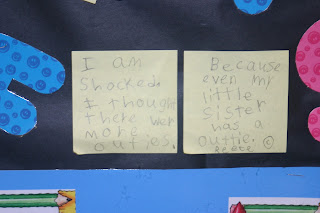 I am
Shocked.
I thought
there wer
more
outies.
Because
even my
little
sister
was a
outtie. ☺
Reece